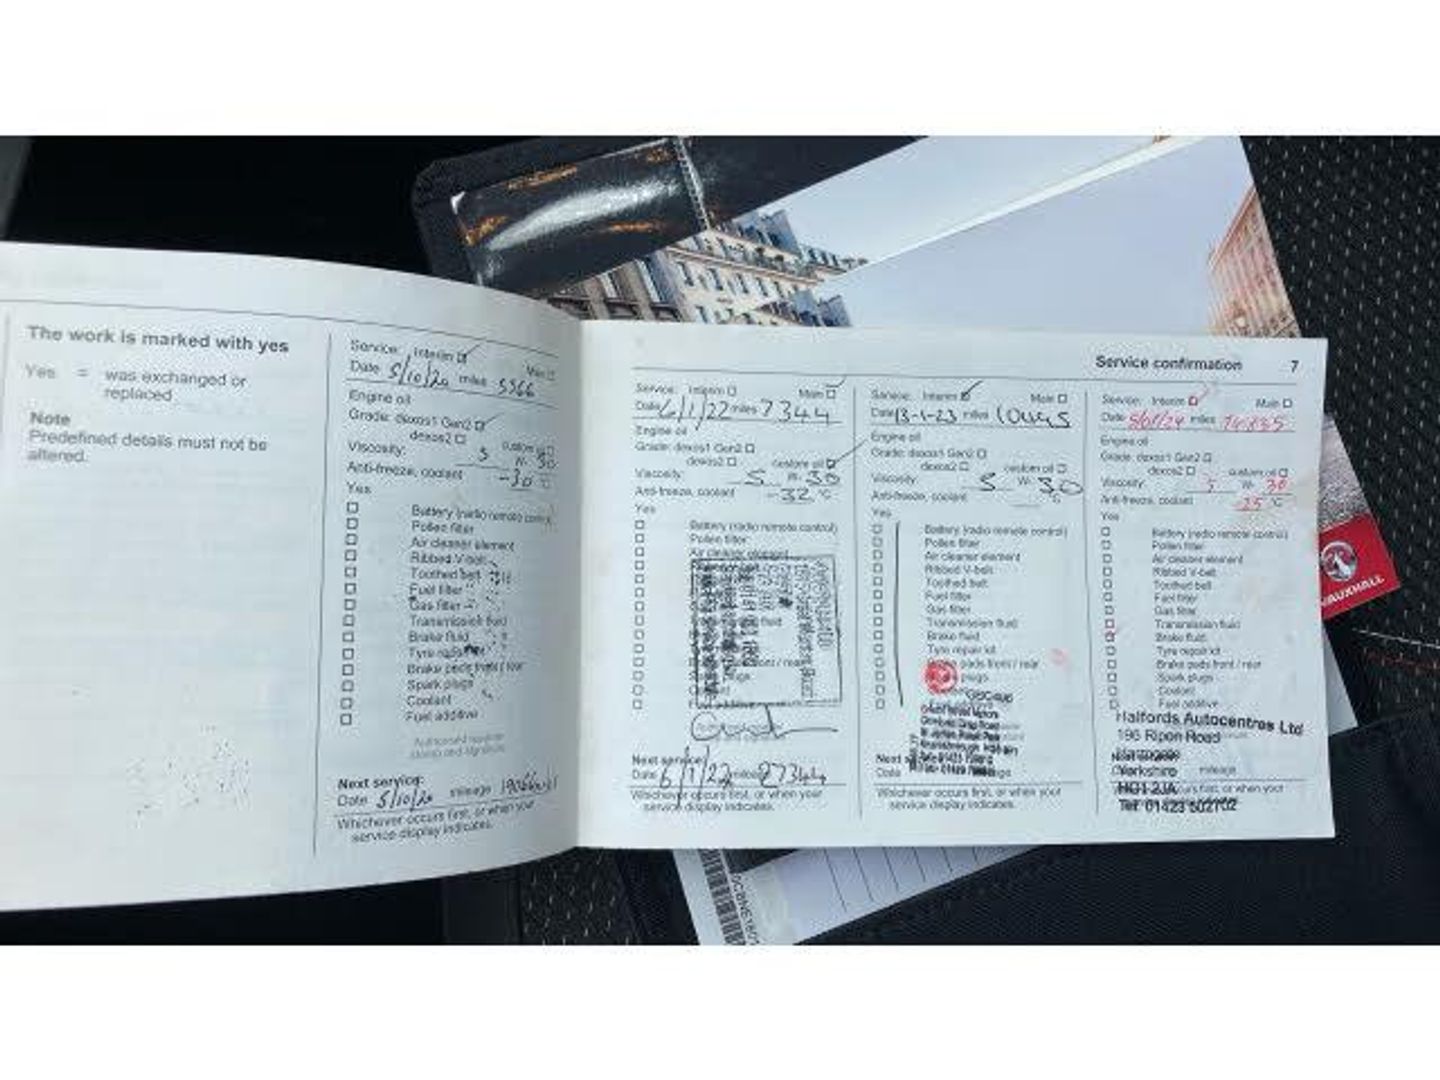 The work is marked with yes
Yes = was exchanged or
replaced
Note
Predefined details must not be
altered.
Service: Interim
Main
Date 5/10/20 miles 5366
Engine oil
Grade: dexos1 Gen2
dexos2 custom oil
Viscosity: 5 W- 30
Anti-freeze, coolant -30 °C
Yes
Battery (radio remote control)
Pollen filter
Air cleaner element
Ribbed V-belt
Toothed belt
Fuel filter
Gas filter
Transmission fluid
Brake fluid
Tyre repair kit
Brake pads front / rear
Spark plugs
Coolant
Fuel additive
Authorised repairer
stamp and signature
Next service:
Date 5/10/20 mileage
Whichever occurs first, or when your
service display indicates.
Service confirmation 7
Service: Interim Main
Date 6/1/22 miles 7344
Engine oil
Grade: dexos1 Gen2
dexos2 custom oil
Viscosity: 5 W- 30
Anti-freeze, coolant -32 °C
Yes
Battery (radio remote control)
Pollen filter
Air cleaner element
Next service:
Date 6/1/22 mileage 27344
Whichever occurs first, or when your
service display indicates.
Service: Interim Main
Date 13-1-23 miles
Engine oil
Grade: dexos1 Gen2
dexos2 custom oil
Viscosity: 5 W- 30
Anti-freeze, coolant °C
Yes
Battery (radio remote control)
Pollen filter
Air cleaner element
Ribbed V-belt
Toothed belt
Fuel filter
Gas filter
Transmission fluid
Brake fluid
Tyre repair kit
pads front / rear
plugs
Next
Date
Whichever occurs first, or when your
service display indicates.
Service: Interim Main
Date miles
Engine oil
Grade: dexos1 Gen2
dexos2 custom oil
Viscosity: 5 W- 30
Anti-freeze, coolant -25 °C
Yes
Battery (radio remote control)
Pollen filter
Air cleaner element
Ribbed V-belt
Toothed belt
Fuel filter
Gas filter
Transmission fluid
Brake fluid
Tyre repair kit
Brake pads front / rear
Spark plugs
Coolant
Fuel additive
Halfords Autocentres Ltd
196 Ripon Road
Harrogate
Yorkshire mileage
HG1 2JA
Tel: 01423 502702
VAUXHALL